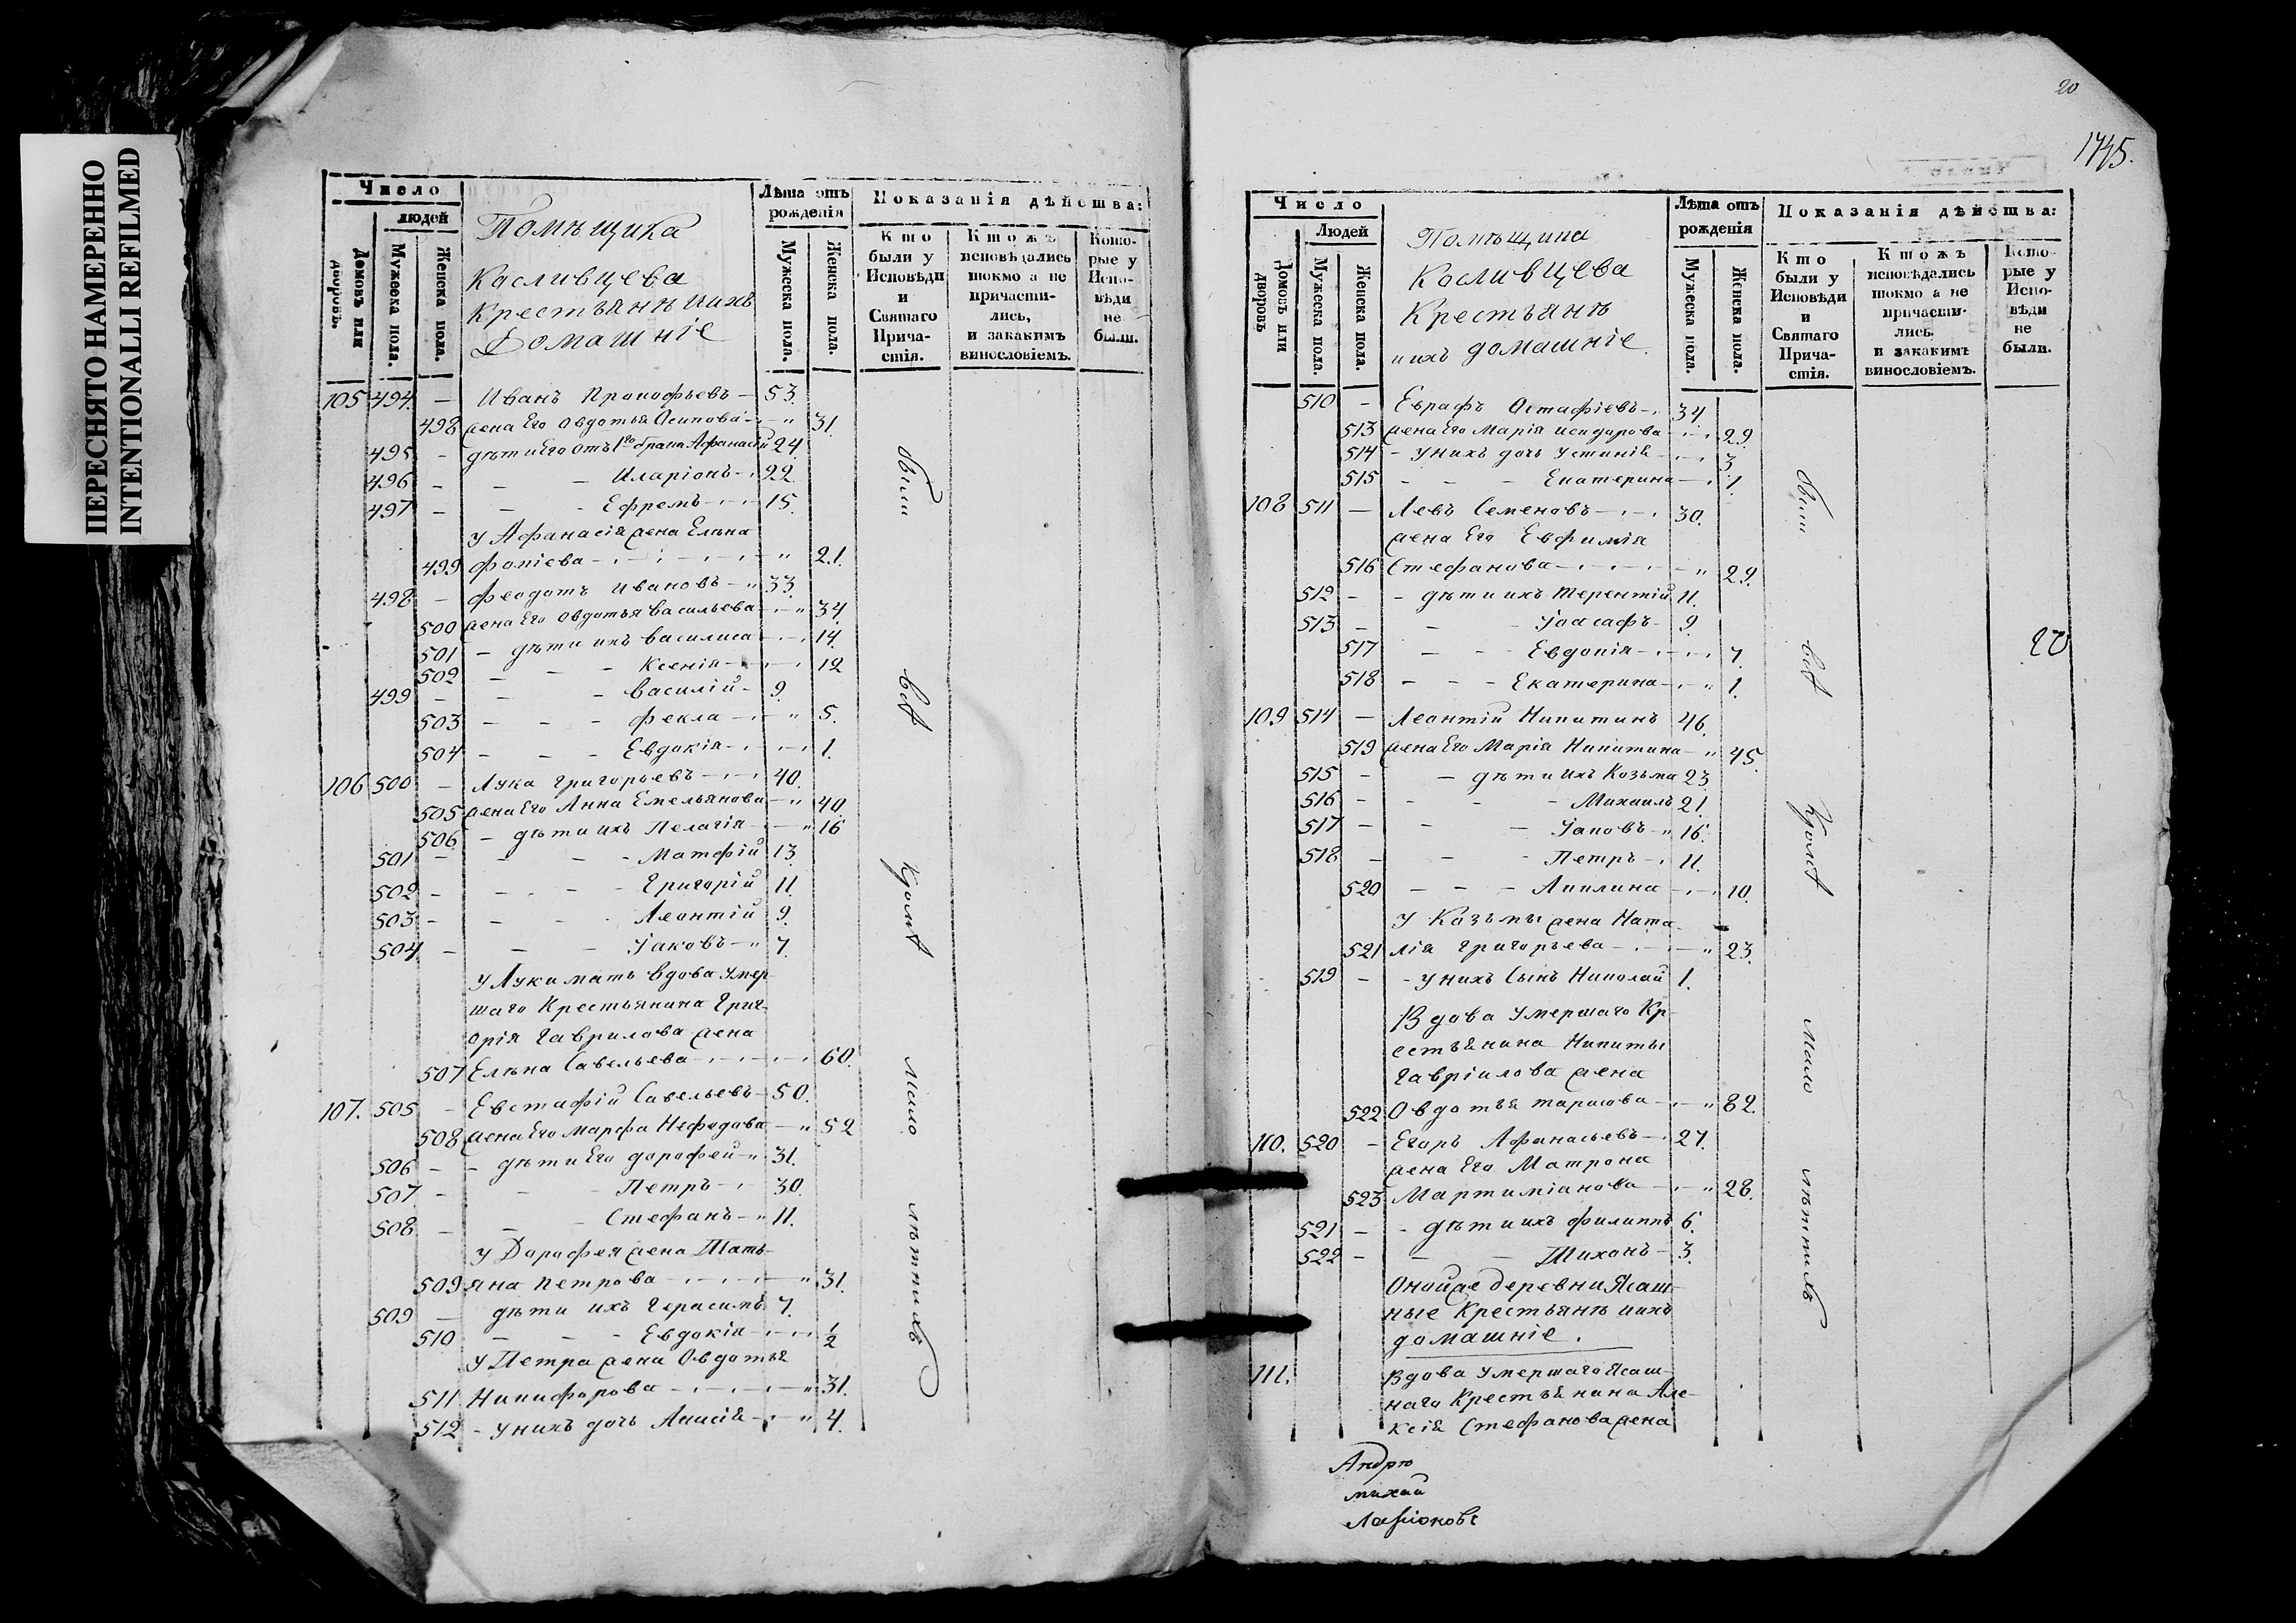 ПЕРЕСНЯТО НАМЕРЕННО
INTENTIONALLI REFILMED
Число
людей
Домовъ или дворовъ.
Мужеска пола.
Женска пола.
Помѣщика
Касливцева
Крестьянѣ иихъ
Домашніе
Лѣта отъ рожденія
Мужеска пола.
Женска пола.
Показанія дѣйства:
Кто были у Исповѣди и Святаго Причастія.
Ктожъ исповѣдались токмо а не причастились, и закакимъ винословіемъ.
Которые у Исповѣди не были.
105 494. — Иванъ Прокофьевъ — 53.
498 жена Его Овдотья Осипова — 31.
495 — дѣти Его отъ 1го брака Афанасій 24.
496 — — — Иларіонъ 22.
497 — — — Ефремъ 15.
у Афанасія жена Елена
499 фотіева 21.
498 — Феодотъ Ивановъ 33.
500 жена Его Овдотья Васильева 34.
501 — дѣти ихъ Василиса 14.
502 — — — Ксенія 12
499 — — — Василій 9.
503 — — — Фекла 5.
504 — — — Евдокія 1.
106 500 — Лука Григорьевъ 40.
505 жена Его Анна Емельянова 40.
506 — дѣти ихъ Пелагія 16
501 — — — Матфій 13.
502 — — — Григорій 11.
503 — — — Леонтій 9.
504 — — — Іаковъ 7.
у Луки мать вдова умер-
шаго Крестьянина Григ-
орія Гаврилова жена
507 Елѣна Савельева 60.
107. 505 — Евстафій Савельевъ 50.
508 жена Его Марфа Нефедова 52
506 — — дѣти Его Дорофей 31.
507 — — — Петръ 30.
508 — — — Стефанъ 11.
у Дорофея жена Тать-
509 яна Петрова 31.
509 — дѣти ихъ Герасимъ 7.
510 — — — Евдокія 1/2
у Петра жена Овдотья
511 Никифорова 31.
512 — у нихъ дочь Анисія 4.
были
всѣ
Кромѣ
мало
лѣтнихъ
20
1745.
Число
Людей
Домовъ или дворовъ
Мужеска пола.
Женска пола.
Помѣщика
Касливцева
Крестьянѣ
иихъ домашніе.
Лѣта отъ рожденія
Мужеска пола.
Женска пола.
Показанія дѣйства:
Кто были у Исповѣди и Святаго Причастія.
Ктожъ исповѣдались токмо а не причастились. и закакимъ винословіемъ.
Которые у Исповѣди не были.
510 — Евграфъ Остафіевъ 34.
513 жена Его Марія Исидорова 29.
514 — у нихъ дочь Устинія 3.
515 — — — Екатерина 1.
108 511 — Левъ Семеновъ 30.
жена Его Евфимія
516 Стефанова 29.
512 — — дѣти ихъ Терентій 11.
513 — — — Іоасафъ 9.
517 — — — Евдокія 7.
518 — — — Екатерина 1.
20
109 514 — Леонтій Никитинъ 46.
519 жена Его Марія Никитина 45.
515 — — дѣти ихъ Козьма 23.
516 — — — Михаилъ 21.
517 — — — Іаковъ 16.
518 — — — Петръ 11.
520 — — — Акилина 10.
у Козьмы жена Ната-
521 лія Григорьева 23.
519 — — у нихъ Сынъ Николай 1.
Вдова умершаго Кр-
естьянина Никиты
Гавріилова жена
522 Овдотья Тарасова 82.
110. 520 — Егоръ Афанасьевъ 27.
жена Его Матрона
523 Мартиміанова 28.
521 — — дѣти ихъ Филиппъ 6.
522 — — — Тихонъ 3.
Онойже деревни Ясаш-
ные Крестьянѣ иихъ
домашніе.
111. Вдова умершаго Ясаш-
наго Крестьянина Але-
ксія Стефанова жена
были
всѣ
Кромѣ
мало
лѣтнихъ
Андрю
михаи
Ларіонове